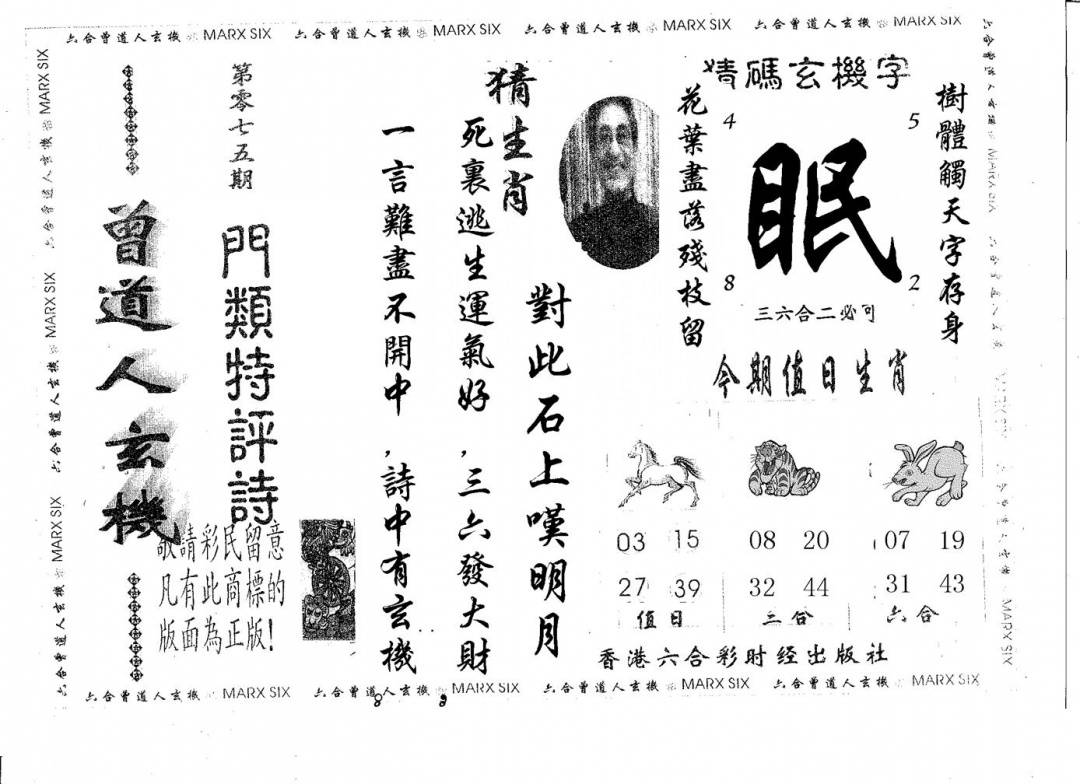 六合曾道人玄機 MARX SIX 六合曾道人玄機 MARX SIX 六合曾道人玄機 MARX SIX 六合曾道人玄機 MARX SIX
猜碼玄機字
樹體觸天字存身
4 5
眠
8 2
花葉盡落殘枝留
三六合二必可
今期值日生肖
03 15
27 39
值日
08 20
32 44
三合
07 19
31 43
六合
香港六合彩时经出版社
猜生肖
對此石上嘆明月
死裏逃生運氣好,三六發大財
一言難盡不開中,詩中有玄機
第零七五期
門類特評詩
敬請彩民留意
凡有此商標的
版面為正版!
曾道人玄機
六合曾道人玄機 MARX SIX 六合曾道人玄機 MARX SIX 六合曾道人玄機 MARX SIX
六合曾道人玄機 MARX SIX 六合曾道人玄機 MARX SIX 六合曾道人玄機 MARX SIX 六合曾道人玄機 MARX SIX